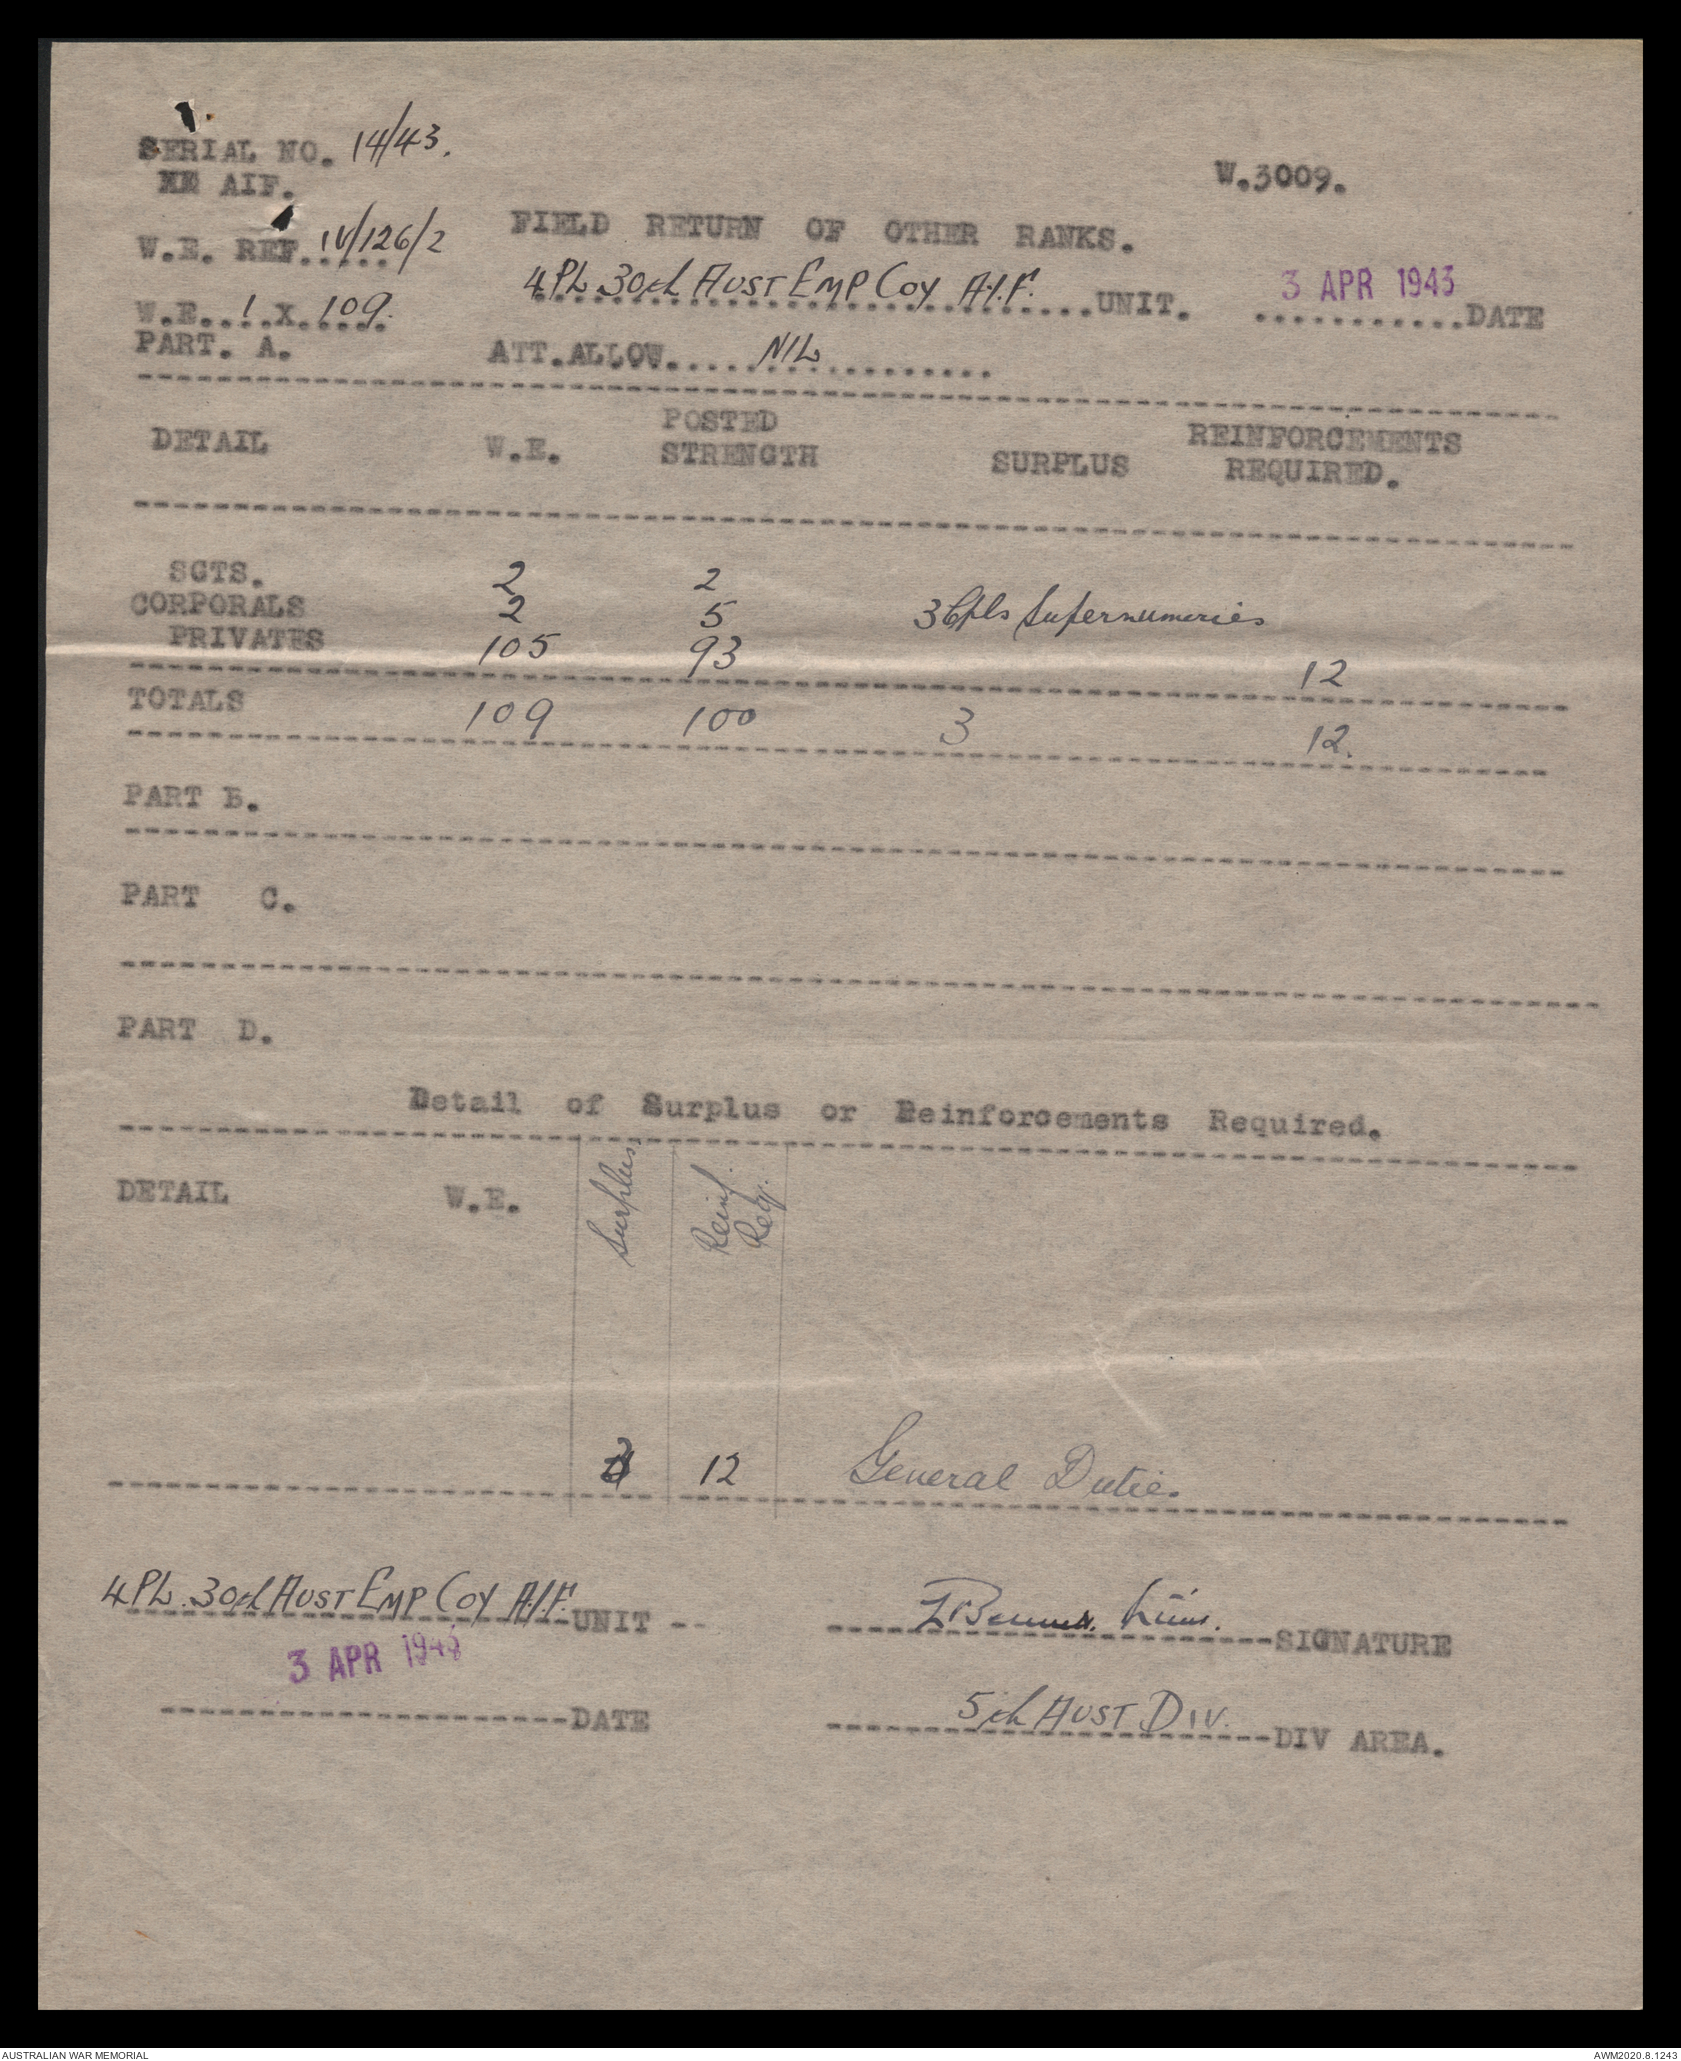 SERIAL NO. 14/43.
AIF.
W.3009.
FIELD RETURN OF OTHER RANKS.
W.E. REF..... IV/126/2
4 PL 30th AUST EMP COY A.I.F. UNIT. 3 APR 1943 DATE
W.E...1..X..109.
PART. A. ATT.ALLOW.....NIL
DETAIL W.E. POSTED STRENGTH SURPLUS REINFORCEMENTS REQUIRED.
SGTS. 2 2
CORPORALS 2 5 3 Cpls Supernumeries
PRIVATES 105 93 12
TOTALS 109 100 3 12.
PART B.
PART C.
PART D.
Detail of Surplus or Reinforcements Required.
DETAIL W.E. Surplus Reinf. Req.
3 12 General Duties
4 PL. 30th AUST EMP COY A.I.F. UNIT --
SIGNATURE
3 APR 1943
DATE
5th AUST DIV. DIV AREA.
AUSTRALIAN WAR MEMORIAL
AWM2020.8.1243